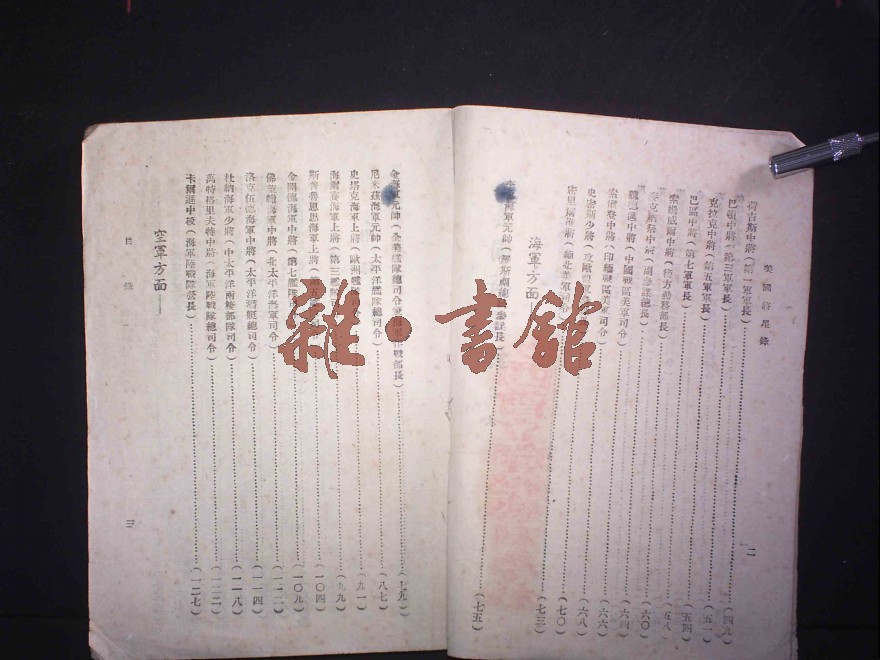 美國將星錄
二
荷吉斯中將(第一軍軍長)(四九)
巴頓中將(第三軍軍長)(五一)
克拉克中將(第五軍軍長)(五四)
巴區中將(第七軍軍長)(五八)
索姆威爾中將(後方勤務部長)(六〇)
中將(副參謀總長)(六四)
魏德邁中將(中國戰區美軍司令)(六六)
索爾登中將(印緬戰區美軍司令)(六八)
史密斯少將(攻歐
密里爾准將(緬北美軍司令)(七三)
海軍方面
海軍元帥(羅斯福總
(七五)
金海軍元帥(全美艦隊總司令兼海軍作戰部長)(七九)
尼米茲海軍元帥(太平洋艦隊總司令)(八七)
史塔克海軍上將(歐洲艦
(九一)
海爾賽海軍上將(第三艦隊
(九九)
斯普魯恩思海軍上將(第五
(一〇四)
金開德海軍中將(第七艦隊
(一〇九)
佛萊契海軍中將(北太平洋海軍司令)(一一二)
洛克伍德海軍中將(太平洋潛艇總司令)(一一四)
杜納海軍少將(中太平洋兩棲部隊司令)(一一八)
萬特格里夫特中將(海軍陸戰隊總司令)(一二二)
卡爾遜中校(海軍陸戰隊營長)(一二七)
空軍方面
目錄
三
雜·書館